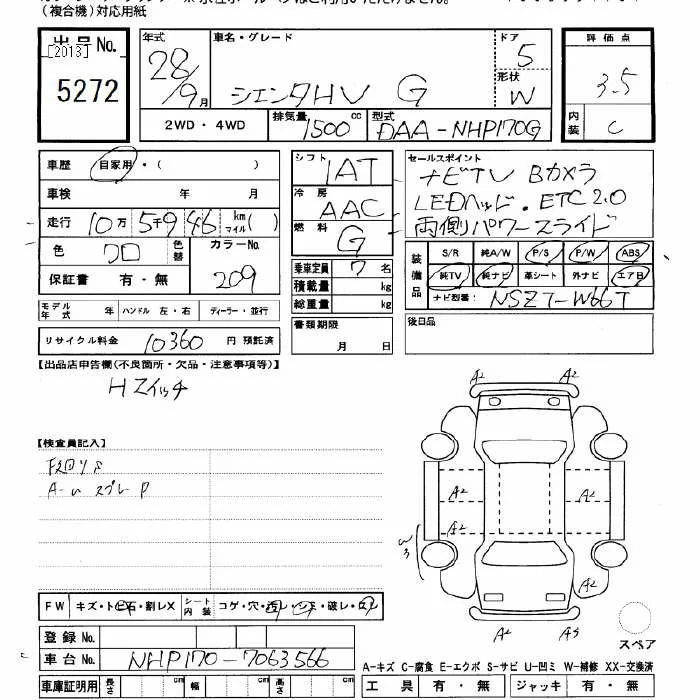 (複合機)対応用紙
出品No.
[2013]
5272
年式 車名・グレード ドア 評価点
28/9月 シエンタHV G 5 3.5
形状 W
2WD・4WD 排気量 1500cc 型式 DAA-NHP170G 内装 C
車歴 自家用・( )
車検 年 月
走行 10万5千946 km マイル( )
色 クロ 色替 カラーNo. 209
保証書 有・無
シフト IAT
冷房 AAC
燃料 G
乗車定員 7名
積載量 kg
総重量 kg
セールスポイント
ナビTV Bカメラ
LEDヘッド・ETC2.0
両側パワースライド
装備品 S/R 純A/W P/S P/W ABS
純TV 純ナビ 革シート 外ナビ エアB
ナビ型番: NSZT-W66T
モデル年式 年 ハンドル 左・右 ディーラー・並行
書類期限 月 日
後日品
リサイクル料金 10360 円 預託済
【出品店申告欄(不良箇所・欠品・注意事項等)】
Hスイッチ
【検査員記入】
A2 A2
A2 A2
A2
W3
A2 A3
FW キズ・トビ石・割レX シート内装 コゲ・穴・汚レ・シミ・破レ・スレ
登録No.
車台No. NHP170-7063566
スペア
A-キズ C-腐食 E-エクボ S-サビ U-凹ミ W-補修 XX-交換済
車庫証明用 長さ cm 幅 cm 高さ cm 工具 有・無 ジャッキ 有・無